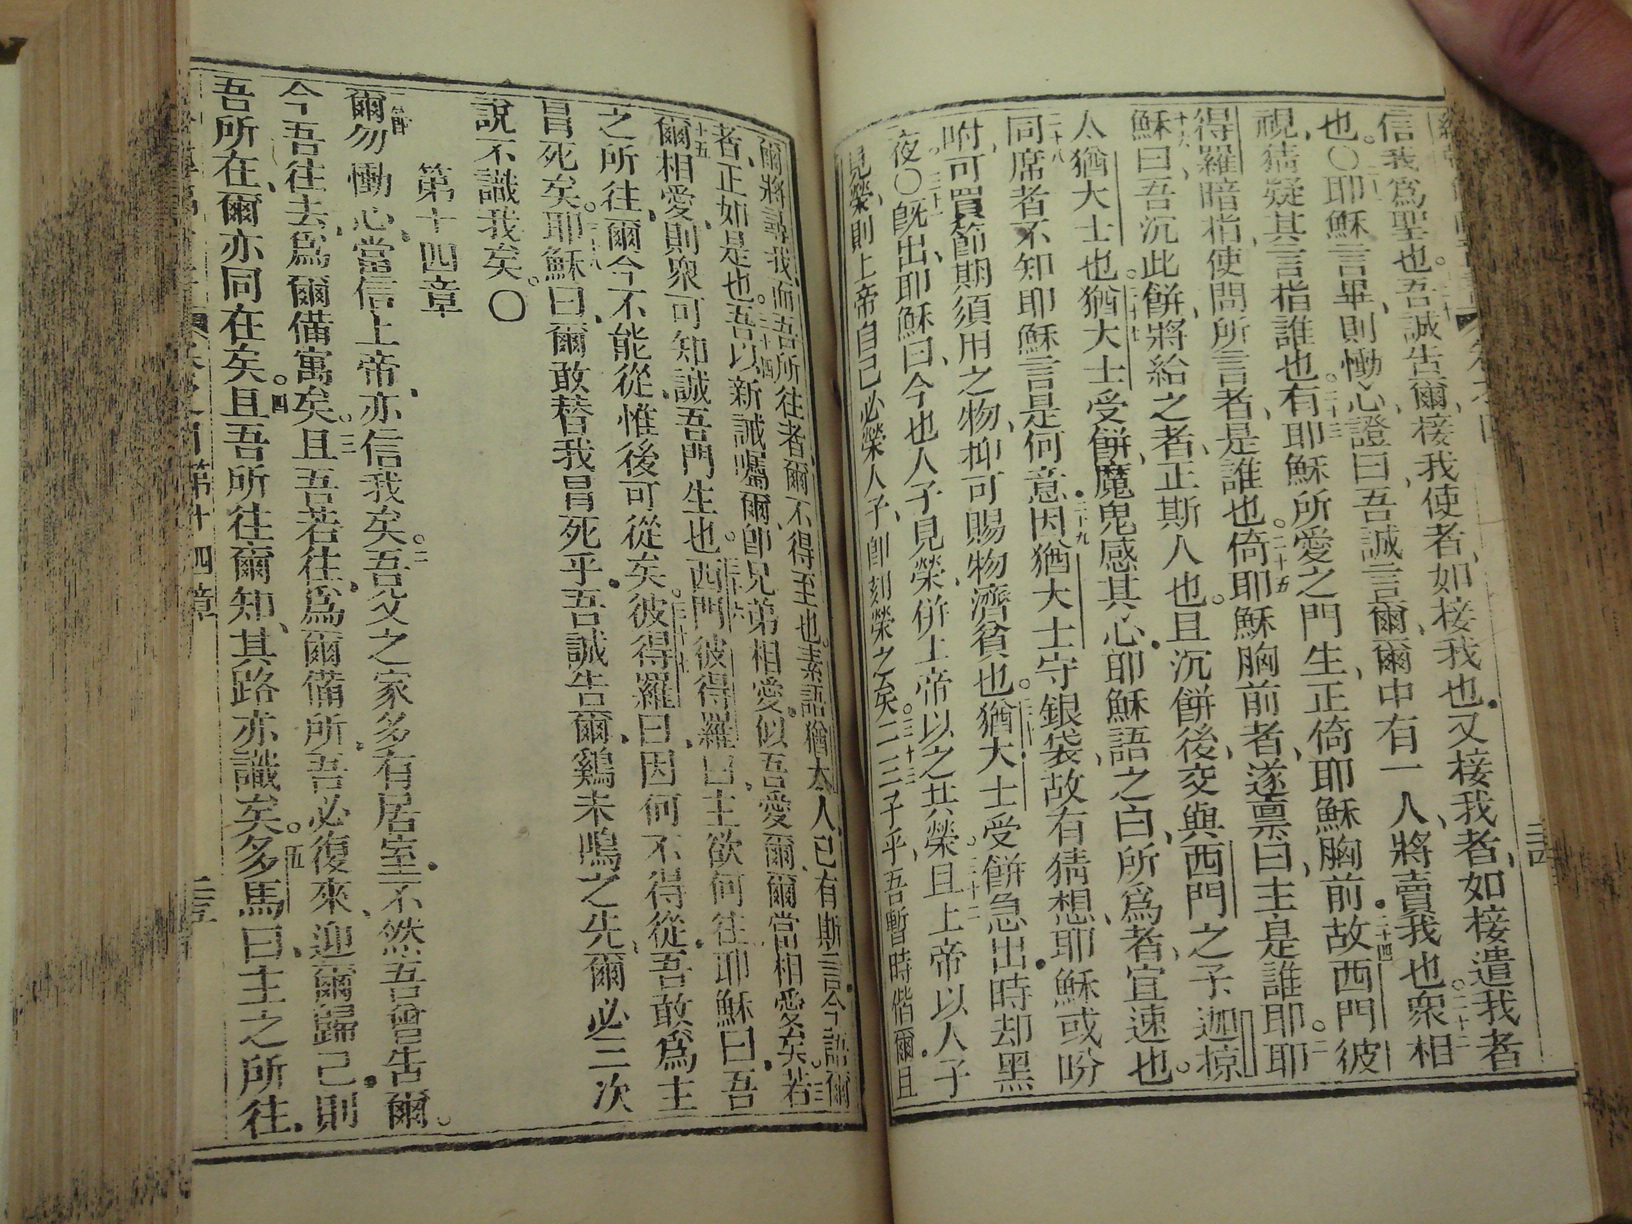 信我爲聖也吾誠告爾接我使者如接我也又接我者如接遣我者
也〇耶穌言畢則慟心證曰吾誠言爾爾中有一人將賣我也衆相
視猜疑其言指誰也有耶穌所愛之門生正倚耶穌胸前故西門彼
得羅暗指使問所言者是誰也倚耶穌胸前者遂禀曰主是誰耶耶
穌曰吾沉此餅將給之者正斯人也且沉餅後交與西門之子迦掠
人猶大士也猶大士受餅魔鬼感其心耶穌語之曰所爲者宜速也
同席者不知耶穌言是何意因猶大士守銀袋故有猜想耶穌或吩
咐可買節期須用之物抑可賜物濟貧也猶大士受餅急出時却黑
夜〇旣出耶穌曰今也人子見榮併上帝以之共榮且上帝以人子
見榮則上帝自己必榮人子卽刻榮之矣二三子乎吾暫時偕爾且
爾將尋我而吾所往者爾不得至也素語猶太人已有斯言今語爾
者正如是也吾以新誡囑爾卽兄弟相愛似吾愛爾爾當相愛矣若
爾相愛則衆可知誠吾門生也西門彼得羅曰主欲何往耶穌曰吾
之所往爾今不能從惟後可從矣彼得羅曰因何不得從吾敢爲主
冒死矣耶穌曰爾敢替我冒死乎吾誠告爾鷄未鳴之先爾必三次
說不識我矣〇
第十四章
爾勿慟心當信上帝亦信我矣吾父之家多有居室不然吾曾告爾
今吾往去爲爾備寓矣且吾若往爲爾備所吾必復來迎爾歸己則
吾所在爾亦同在矣且吾所往爾知其路亦識矣多馬曰主之所往
第十四章